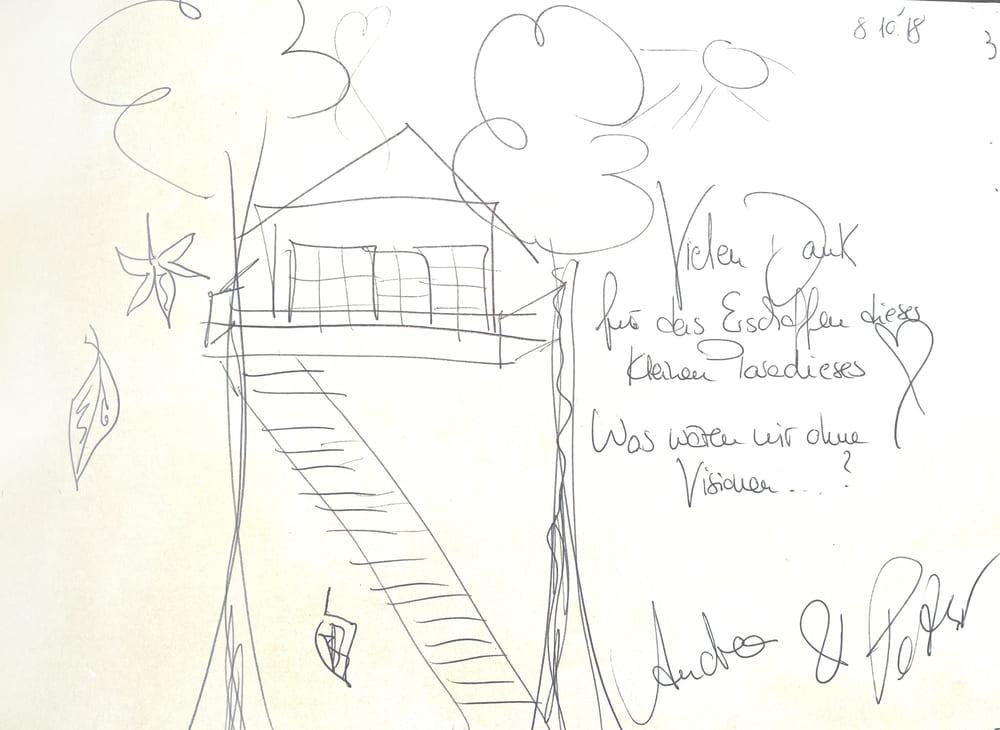 8 10.'18
3
Vielen Dank
für das Erschaffen dieses
kleinen Paradieses
Was wären wir ohne
Visionen....?
Andrea & Peter